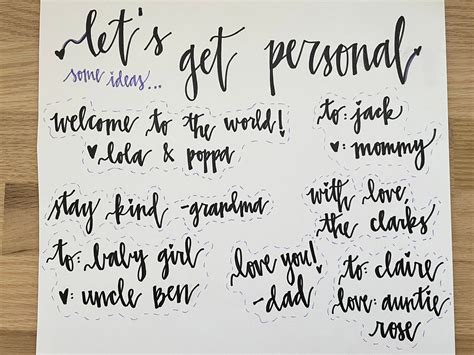 let's
get personal
some ideas...
welcome to the world!
♥ lola & poppa
to: jack
♥: mommy
stay kind -grandma
with love,
the clarks
to: baby girl
♥: uncle Ben
love you!
-dad
to: claire
love: auntie
rose